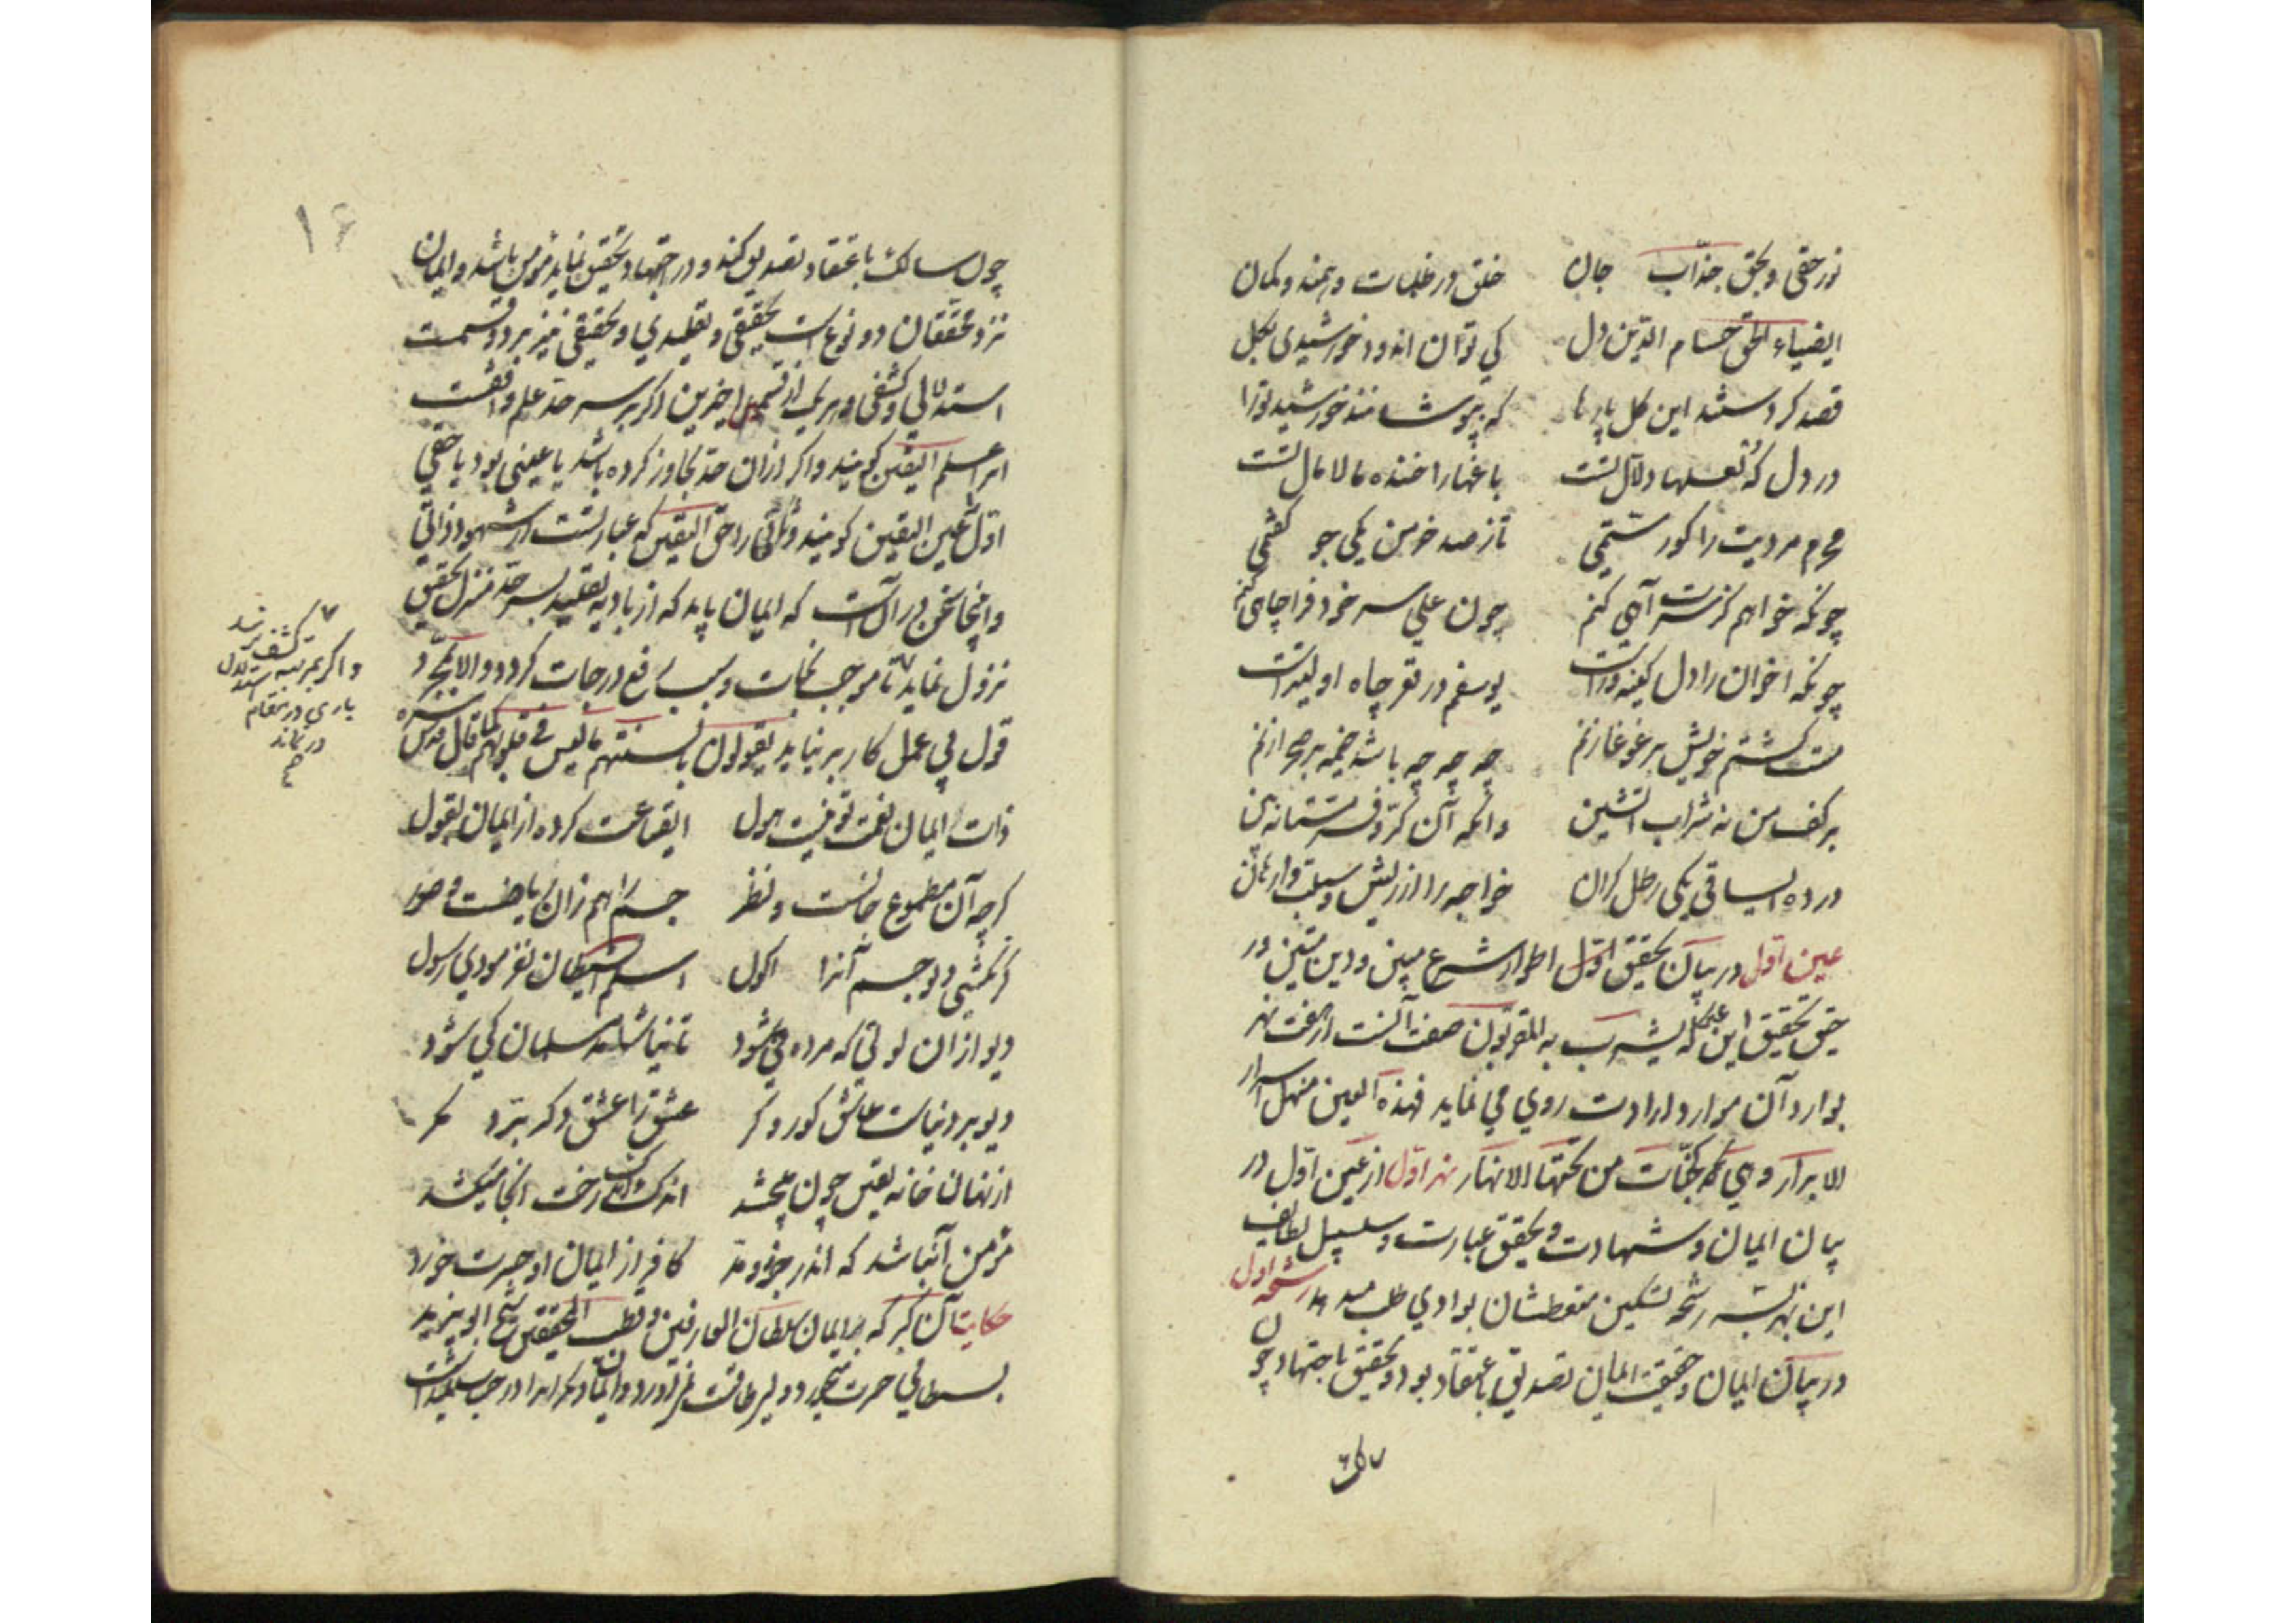 نور حقی و بحق جذّاب جان خلق در ظلمات وهمند و کمان
ای ضیاء الحق حسام الدین دل کی توان اندود خورشیدی بکل
قصد کردستند این کل پارها که بپوشانند خورشید تورا
در دل که لعلها دلال تست باغها را خنده مالامال تست
محرم مردیت را کو رستمی تا ز صد خرمن یکی جو کفتمی
چونکه خواهم کز سرت آهی کنم چون علی سر خود فرا چاهی کنم
چونکه اخوان را دل کینه ورست یوسفم در قعر چاه اولیترست
مست کشتم خویش بر غوغا زنم چه چه چه باشد خیمه بر صحرا زنم
بر کف من نه شراب آتشین وانکه آن کرّ و فر مستانه بین
در ده ای ساقی یکی رطل کران خواجه را از ریش و سبلت وارهان
عین اول در بیان تحقیق اول اطوار شرع مبین و دین متین در
حق تحقیق این عین که یشرب به المقربون صفت آنست از هفت نهر
بوارد آن موارد ارادت روی می نماید فهذه العین منهل اسرار
الابرار و هی کجنّات من تحتها الانهار نهر اول از عین اول در
بیان ایمان و شهادت و تحقیق عبارت و سلسبیل لطایف
این نهر بسه رشحه تسکین متعطشان بوادی طلب میدهد رشحه اول
در بیان ایمان و حقیقت ایمان تصدیق باعتقاد بود و تحقیق باجتهاد چون
چون سالک باعتقاد تصدیق کند و در اجتهاد تحقیق نماید مؤمن باشد و ایمان
نزد محققان دو نوع است تحقیقی و تقلیدی و تحقیقی نیز بر دو قسمست
استدلالی و کشفی و هر یک از قسمین اخرین اکر بر سر حدّ علم واقفست
انرا علم الیقین کویند و اکر از ان حدّ تجاوز کرده باشد یا عینی بود یا حقی
اول عین الیقین کویند و ثانی را حق الیقین که عبارتست از شهود ذاتی
و اینجا سخن در آنست که ایمان باید که از بادیه تقلید بسر حدّ منزل تحقیق
نزول نماید تا موجب نجات و سبب رفع درجات کردد و الا بمجرد
قول بی عمل کار بر نیاید یقولون بالسنتهم ما لیس فی قلوبهم کما قال قدس سره
ذات ایمان نعمت و لوتیست هول ای قناعت کرده از ایمان بقول
کرچه آن مطعوم جانست و نظر جسم را هم زان نصیبست ای پسر
کر نکشتی دیو جسم آنرا اکول اسلم الشیطان نفرمودی رسول
دیو از ان لوتی که مرده حی شود تا نیاشامد مسلمان کی شود
دیو بر دنیاست عاشق کور و کر عشق را عشق دکر برد مکر
از نهان خانه یقین چون می چشد اندک اندک رخت آنجا میکشد
مؤمن آن باشد که اندر جزر و مد کافر از ایمان او حسرت خورد
حکایت آن کبر که بر ایمان سلطان العارفین و قطب المحققین شیخ ابو یزید
بسطامی حسرت میخورد
واکر بمرتبه کشف نرسد
باری در مقام استدلال
در نماند
صح
۱۶